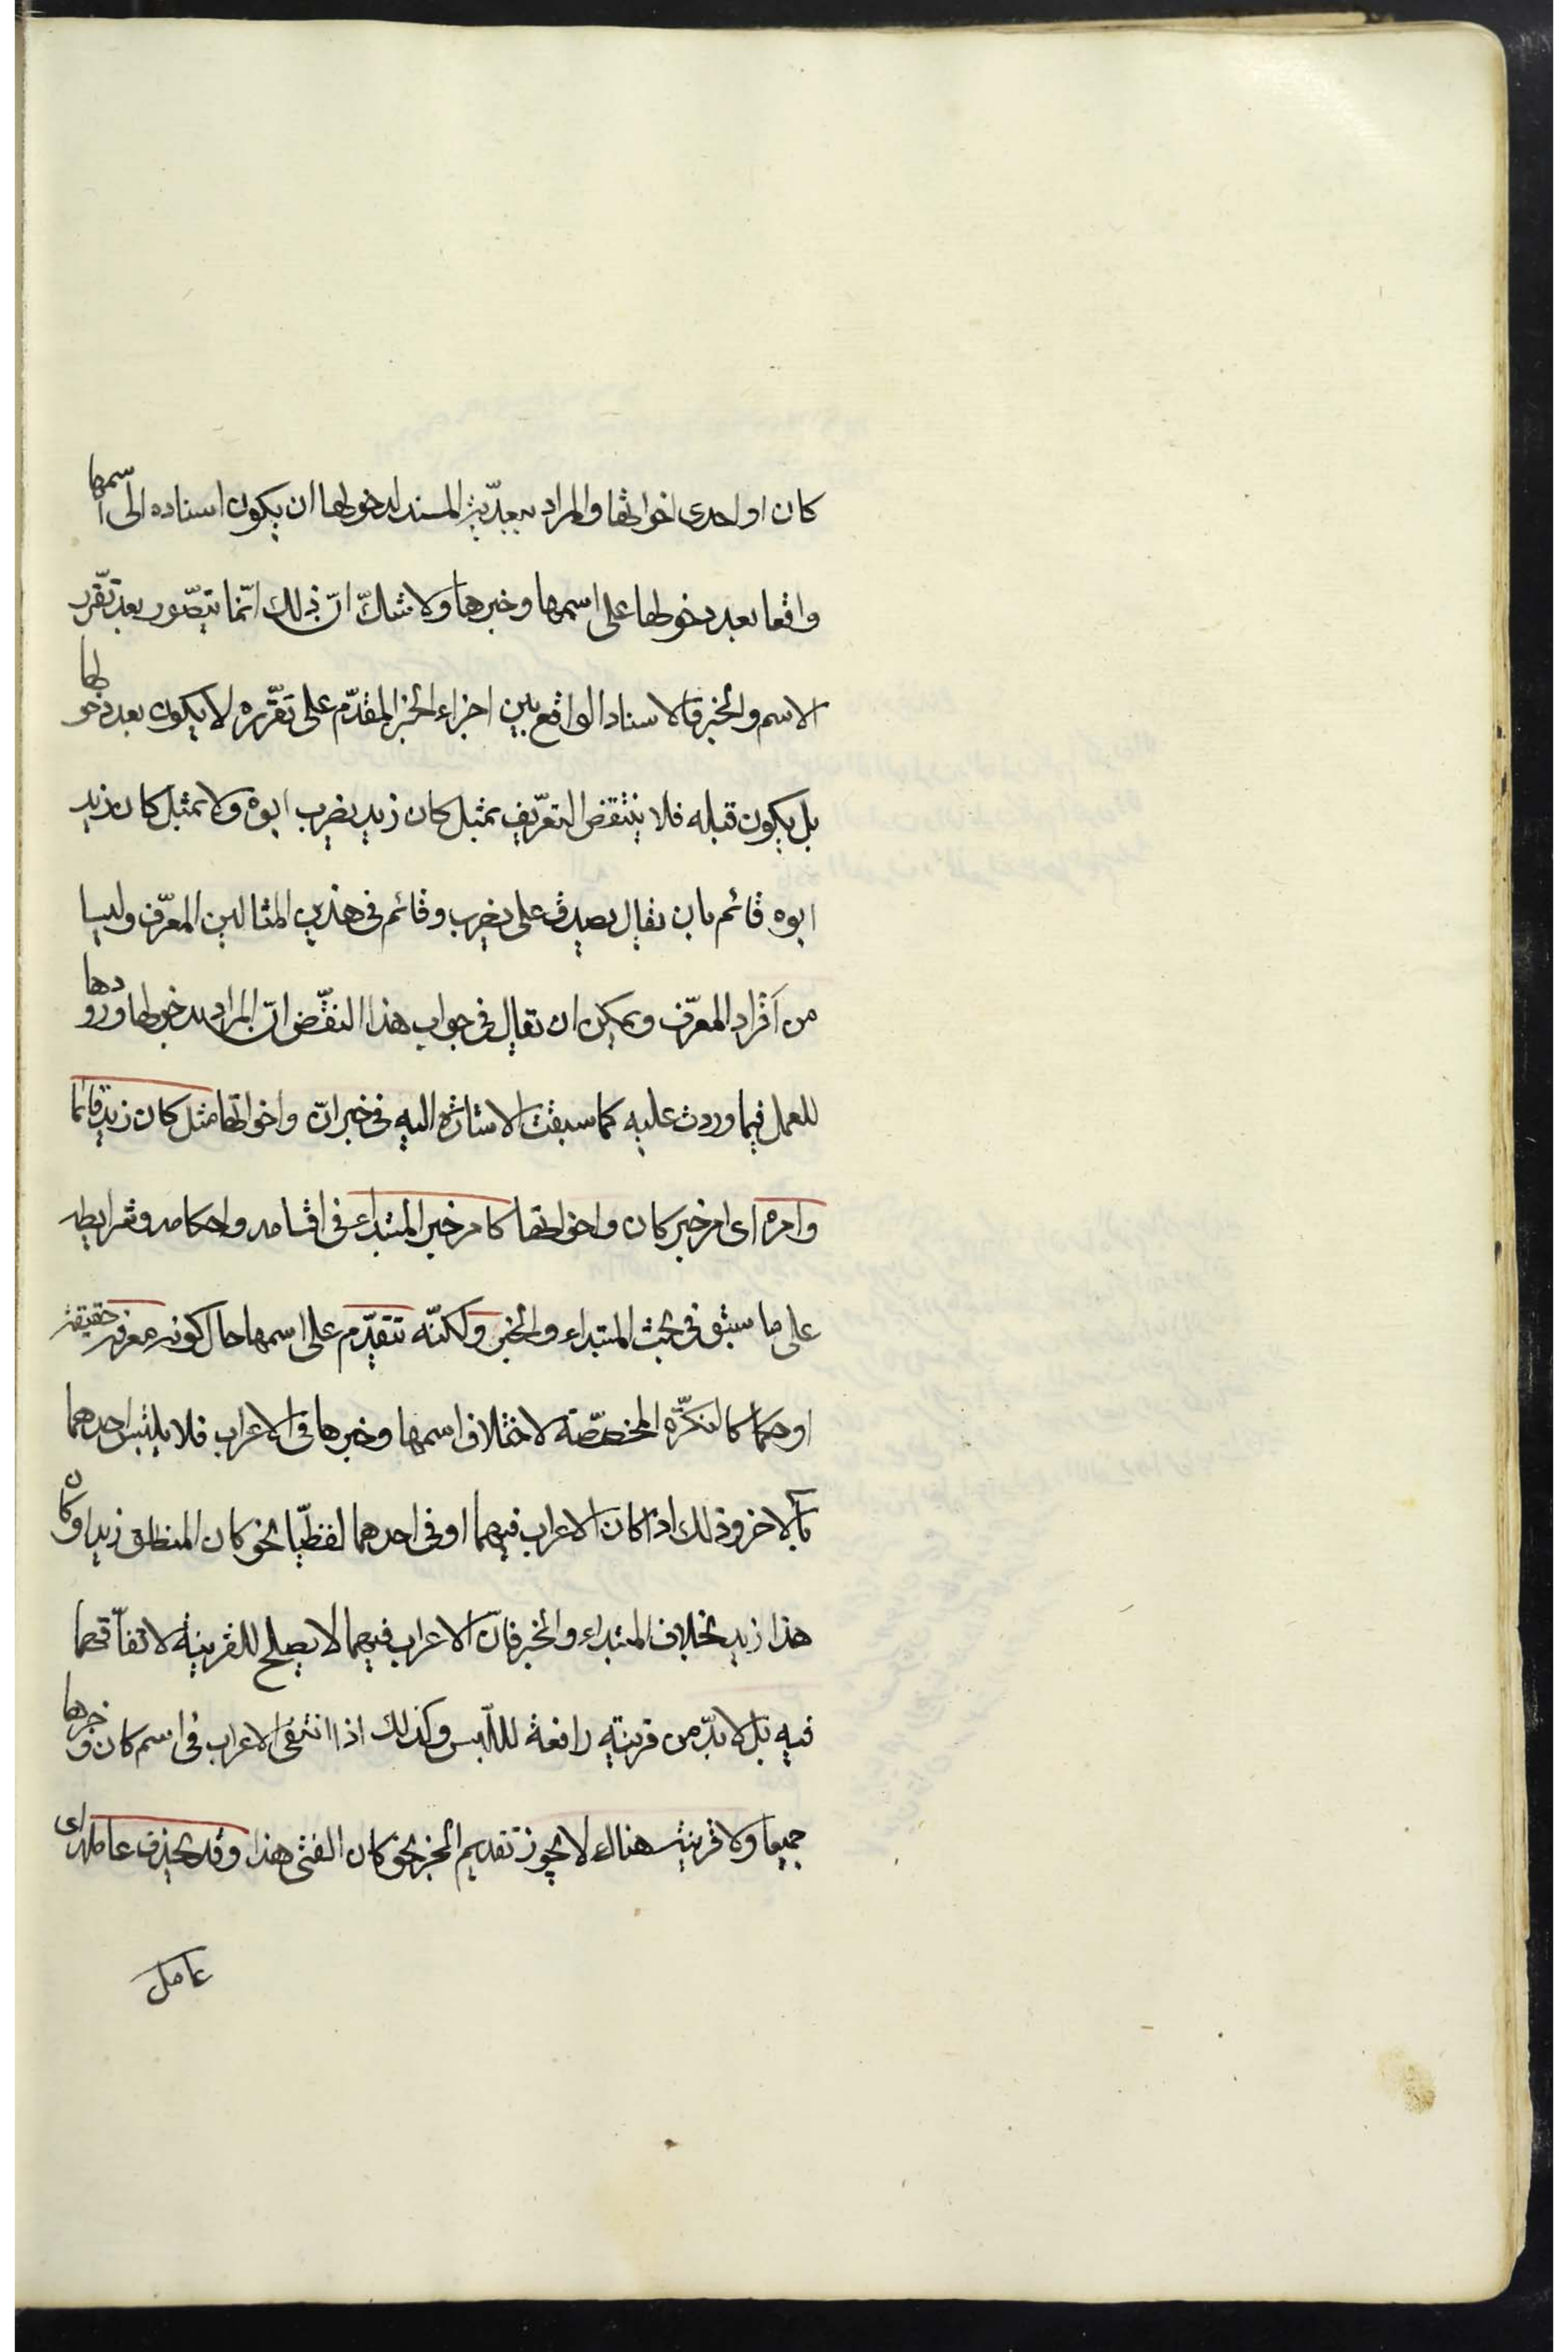 كان او احدى اخواتها والمراد ببعديّة المسند لدخولها ان يكون اسناده الى اسمها
واقعا بعد دخولها على اسمها وخبرها ولا شكّ انّ ذلك انّما يتصّور بعد تقّرر
الاسم والخبر فالاسناد الواقع بين اجزاء الخبر المقدّم على تقرّره لا يكون بعد دخولها
بل يكون قبله فلا ينتقض التعريف بمثل كان زيد يضرب ابوه ولا بمثل كان زيد
ابوه قائم بان يقال يصدق على يضرب وقائم فى هذين المثالين المعرّف وليسا
من افراد المعرّف ويمكن ان يقال فى جواب هذا النقض انّ المراد بدخولها ورودها
للعمل فيما وردت عليه كما سبقت الاشارة اليه فى خبر انّ واخواتها مثل كان زيد قائما
وامره اى امر خبر كان واخواتها كامر خبر المبتداء فى اقسامه واحكامه وشرايطه
على ما سبق فى بحث المبتداء والخبر ولكنّه يتقدّم على اسمها حال كونه معرفة حقيقة
او حكما كالنكرة المخصّصة لاختلاف اسمها وخبرها فى الاعراب فلا يلتبس احدهما
بالاخر وذلك اذا كان الاعراب فيهما او فى احدهما لفظيّا نحو كان المنطلق زيد او كان
هذا زيد بخلاف المبتداء والخبر فانّ الاعراب فيهما لا يصلح للقرينة لاتفاقهما
فيه بل لا بدّ من قرينة رافعة للّبس وكذلك اذا انتفى الاعراب فى اسم كان وخبرها
جميعا ولا قرينة هناك لا يجوز تقديم الخبر نحو كان الفتى هذا وقد يحذف عامله اى
عامل